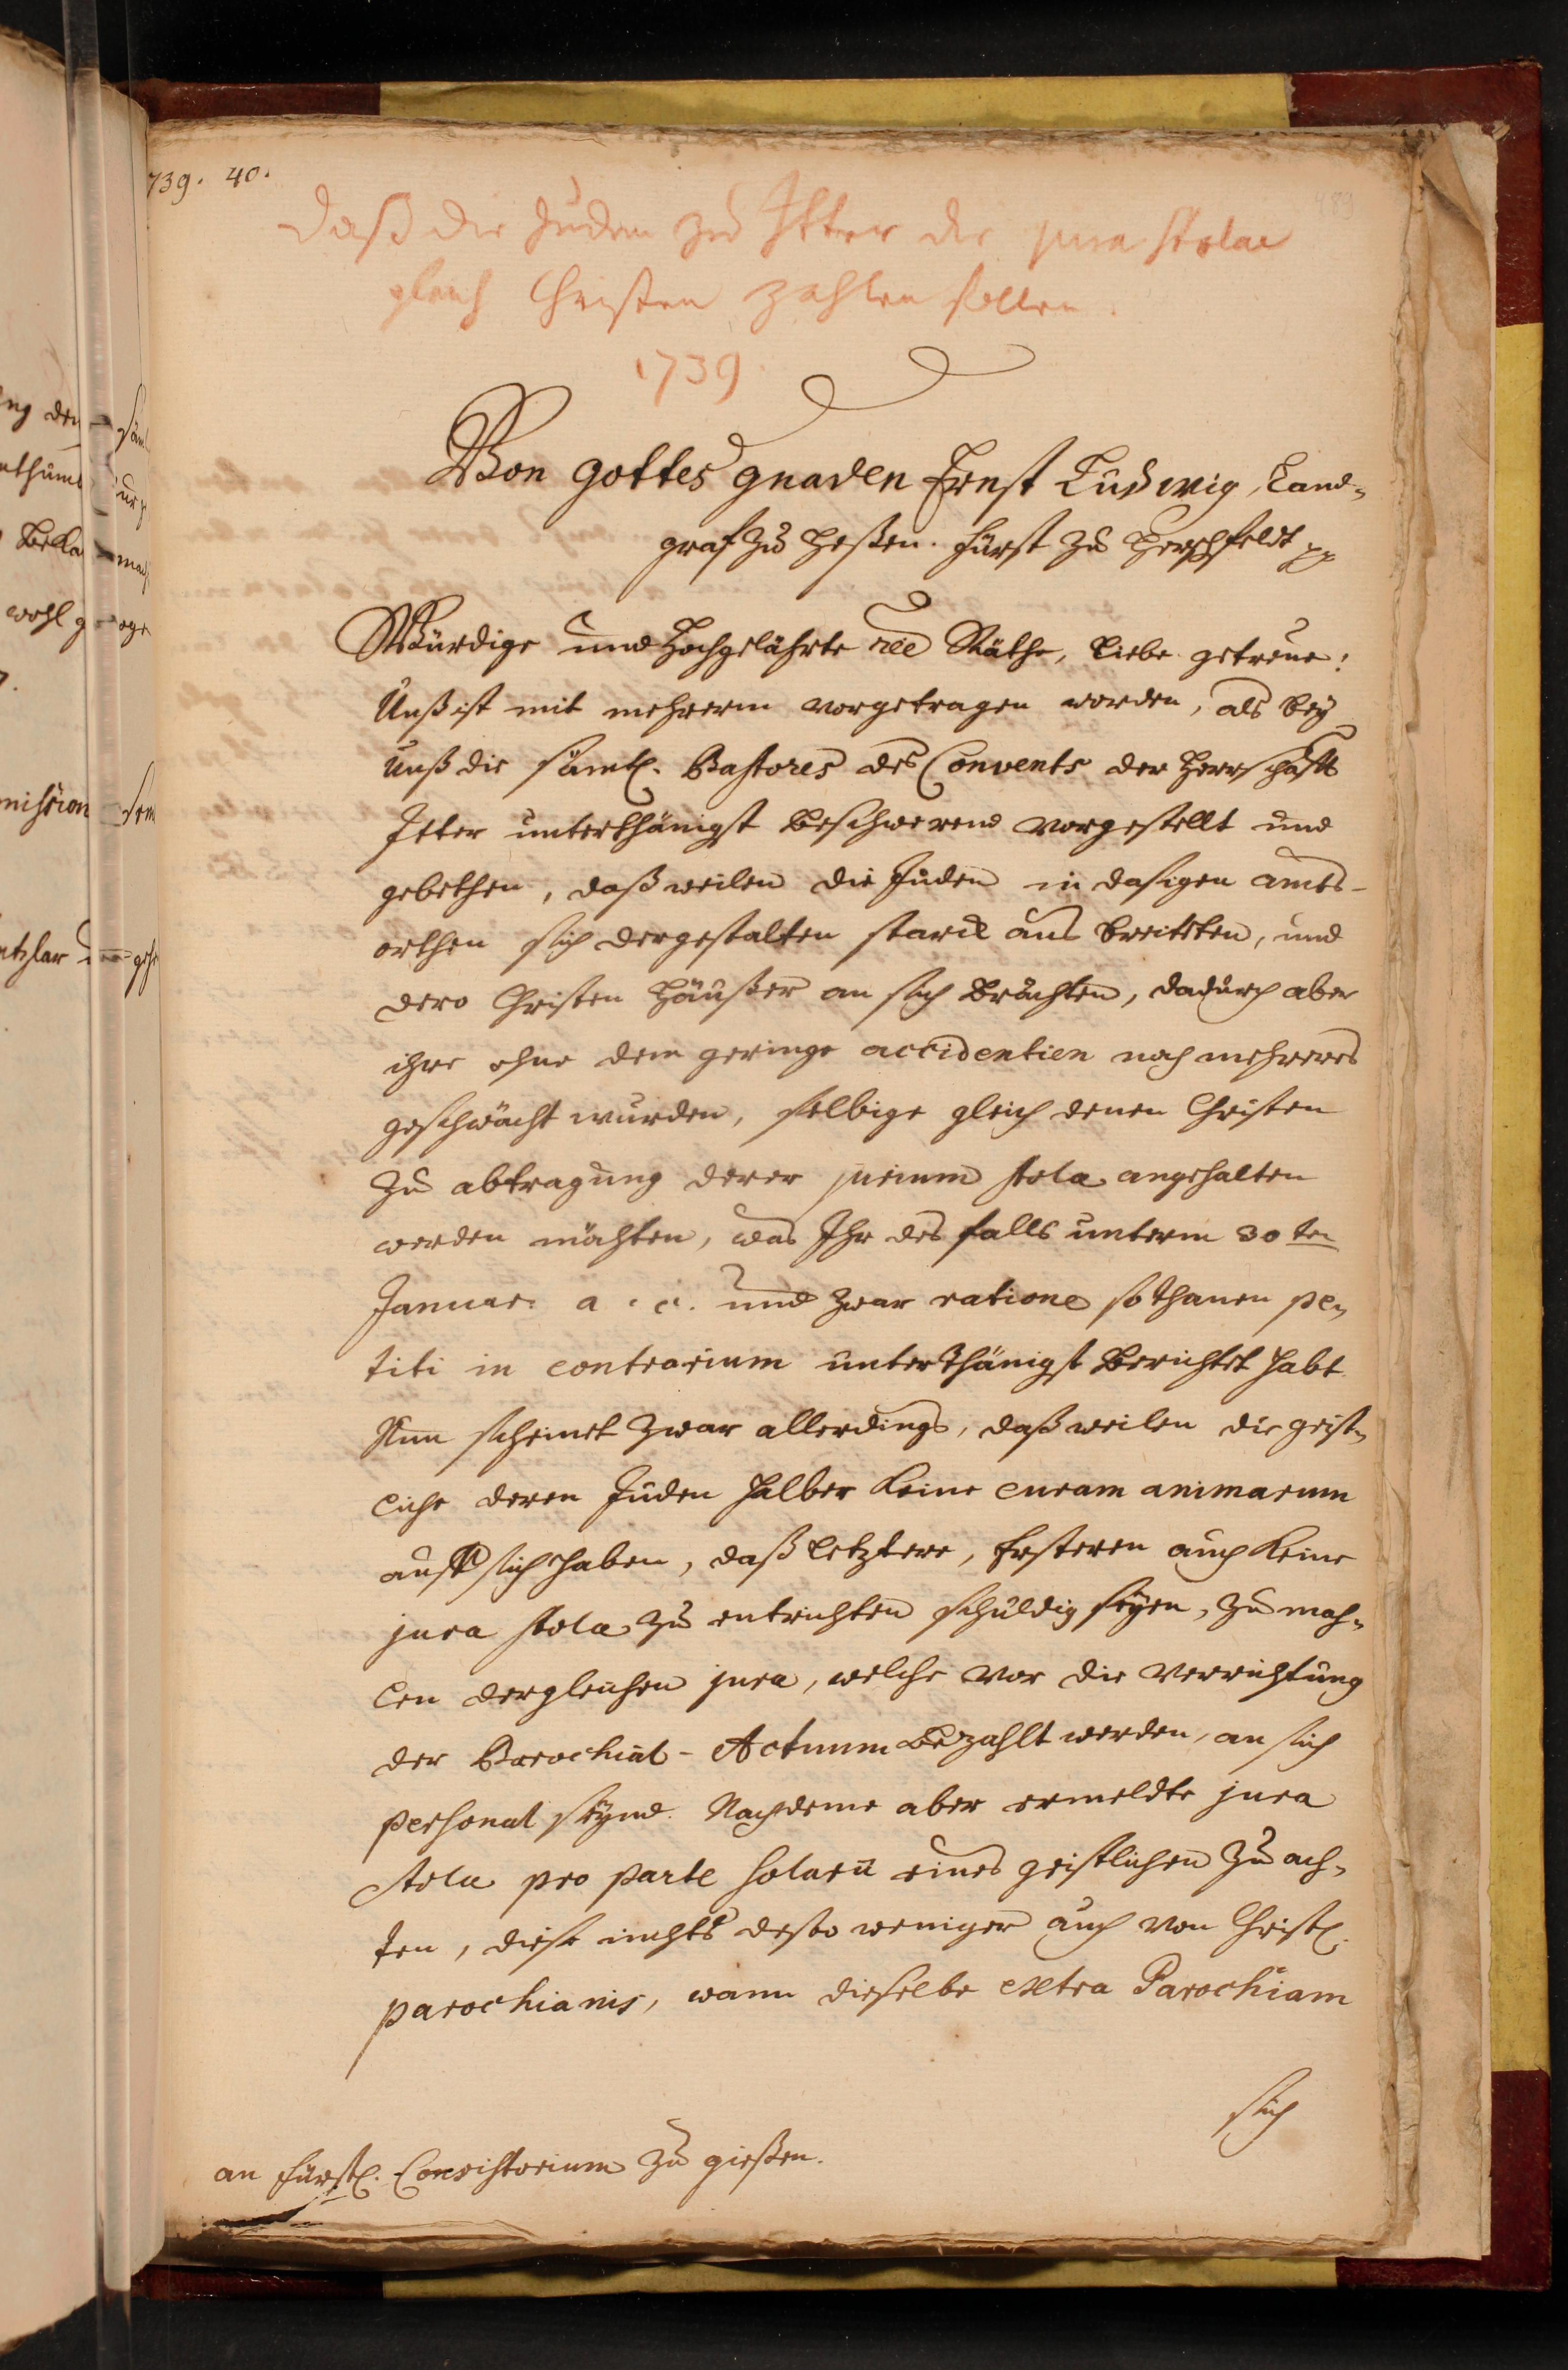 739. 40.
489
Daß die Juden zu Itter die jura stolae
gleich Christen zahlen sollen.
1739.
Von Gottes gnaden Ernst Ludwig, Land-
graf zu Heßen. Fürst zu Herschfeldt pp
Würdige und Hochgelährte Räthe, liebe getreue:
Unß ist mit mehrerm vorgetragen worden, als bey
Unß die sämtl. Pastores des Convents der Herrschafft
Itter unterthänigst beschwerend vorgestellt und
gebethen, daß weilen die Juden in dasigen amts-
orthen sich dergestalten starck aus breiteten, und
dero Christen Häußer an sich brächten, dadurch aber
ihre ohne dem geringe accidentien noch mehreres
geschwächt wurden, selbige gleich denen Christen
zu abtragung derer jurium stolæ angehalten
werden möchten, was Ihr des falls unterm 30ten
Januar. a. c. und zwar ratione sothanen pe-
titi in contrarium unterthänigst berichtet habt.
Nun scheinet zwar allerdings, daß weilen die geist-
liche deren Juden halber keine curam animarum
auff sich haben, daß letztere, Ersteren auch keine
jura stolæ zu entrichten schuldig seyen, zu mah-
len dergleichen jura, welche vor die Verrichtung
der Parochial-Actuum bezahlt werden, an sich
personal seynd. Nachdeme aber ermeldte jura
stolæ pro parte salarii eines geistlichen zu ach-
ten, diese nichts desto weniger auch von Christl.
parochianis, wann dieselbe extra Parochiam
sich
an Fürstl. Consistorium zu gießen.